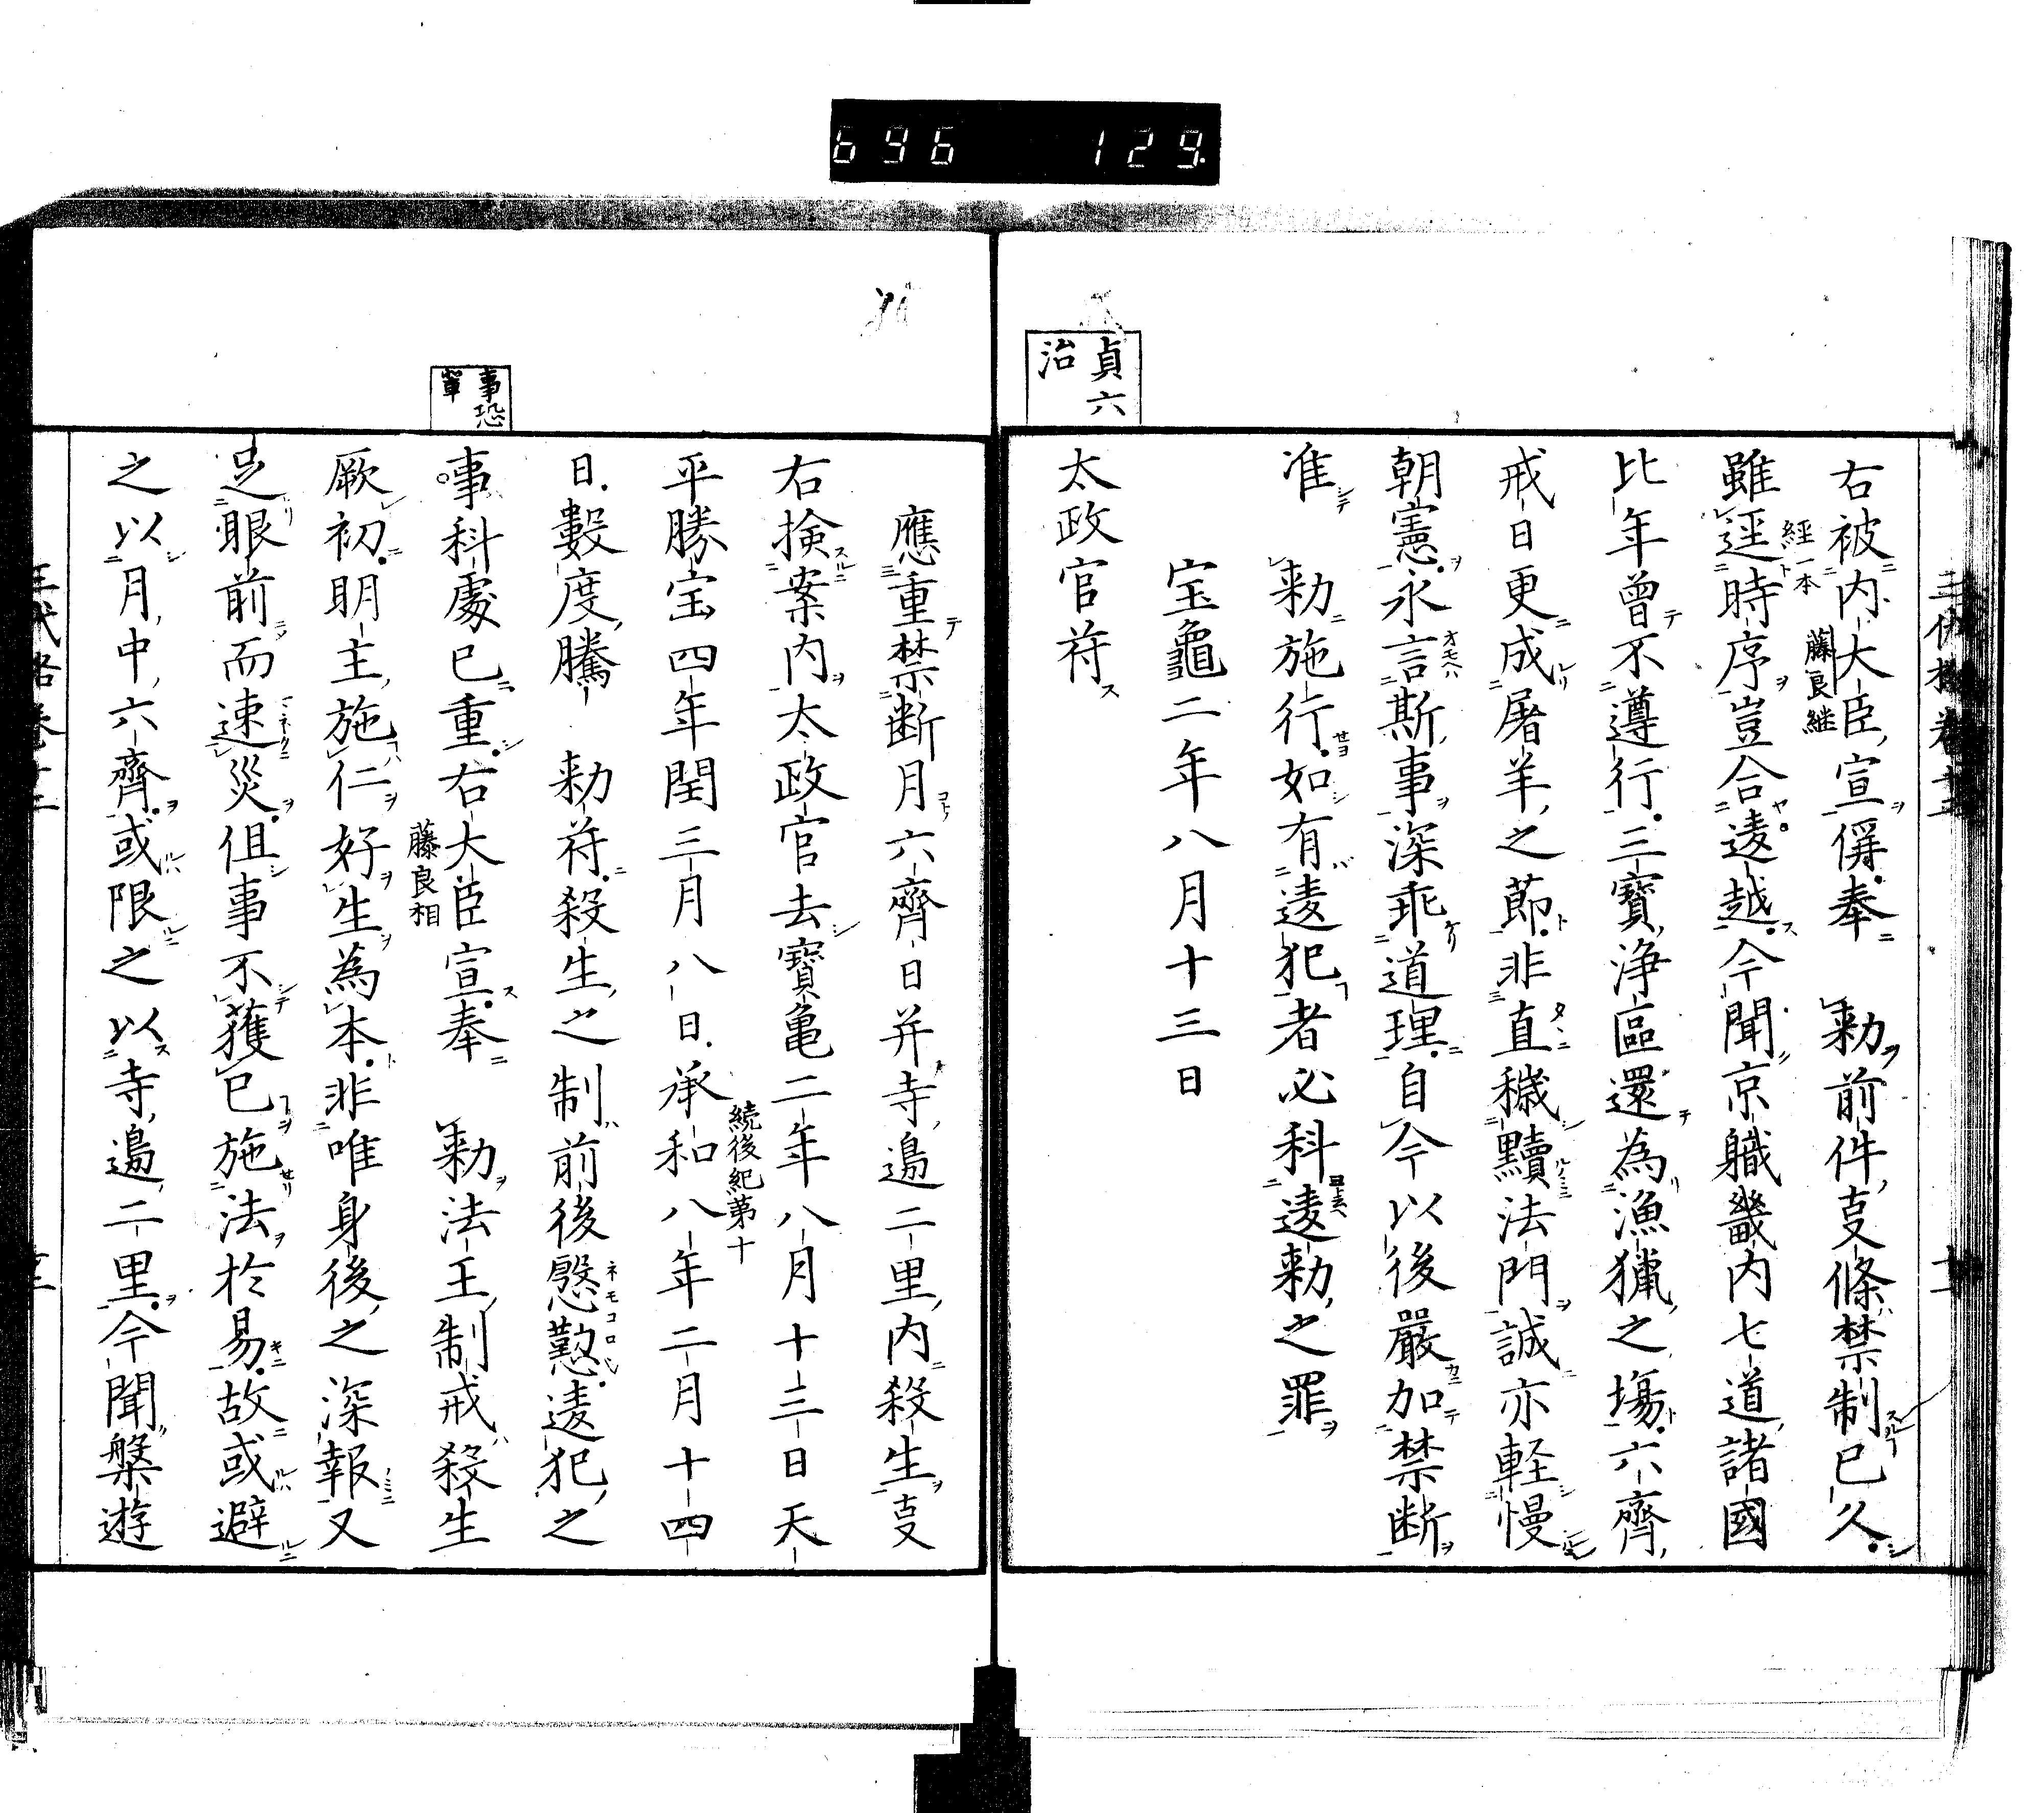 696 129
貞六
治
右被内大臣宣偁奉　勅前件叓條禁制已久
藤良継
雖逕時序豈合違越今聞京職畿内七道諸國
經一本
比年曾不遵行三寶浄區還為漁獵之場六齊
戒日更成屠羊之莭非直穢黷法門誠亦軽慢
朝憲永言斯事深乖道理自今以後嚴加禁断
准　勅施行如有違犯者必科違勅之罪
宝龜二年八月十三日
太政官苻
應重禁断月六齊日并寺邊二里内殺生叓
右撿案内太政官去寶亀二年八月十三日天
平勝宝四年閏三月八日承和八年二月十四
続後紀第十
日數度騰　勅苻殺生之制前後慇懃違犯之
事恐
輩
事科處已重右大臣宣奉　勅法王制戒殺生
藤良相
厥初明主施仁好生為本非唯身後之深報又
足眼前而速災伹事不獲已施法於易故或避
之以月中六齊或限之以寺邊二里今聞槃遊